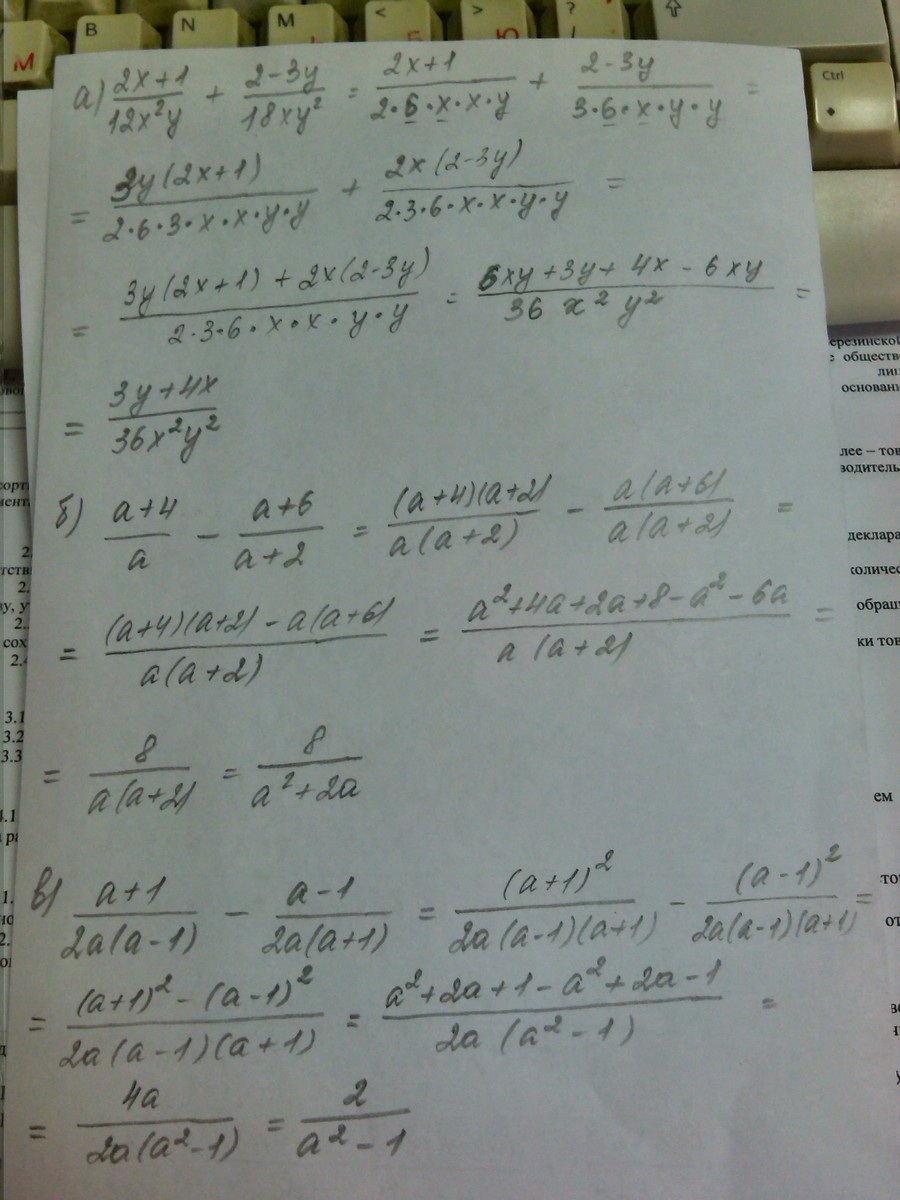 М B N M < Б > Ю ? / ⇧
Ctrl
а) (2x+1)/(12x²y) + (2-3y)/(18xy²) = (2x+1)/(2·6·x·x·y) + (2-3y)/(3·6·x·y·y) =
= 3y(2x+1)/(2·6·3·x·x·y·y) + 2x(2-3y)/(2·3·6·x·x·y·y) =
= (3y(2x+1) + 2x(2-3y))/(2·3·6·x·x·y·y) = (6xy+3y+4x-6xy)/(36x²y²) =
= (3y+4x)/(36x²y²)
б) (a+4)/a - (a+6)/(a+2) = (a+4)(a+2)/(a(a+2)) - a(a+6)/(a(a+2)) =
= ((a+4)(a+2) - a(a+6))/(a(a+2)) = (a²+4a+2a+8-a²-6a)/(a(a+2)) =
= 8/(a(a+2)) = 8/(a²+2a)
в) (a+1)/(2a(a-1)) - (a-1)/(2a(a+1)) = (a+1)²/(2a(a-1)(a+1)) - (a-1)²/(2a(a-1)(a+1)) =
= ((a+1)² - (a-1)²)/(2a(a-1)(a+1)) = (a²+2a+1-a²+2a-1)/(2a(a²-1)) =
= 4a/(2a(a²-1)) = 2/(a²-1)